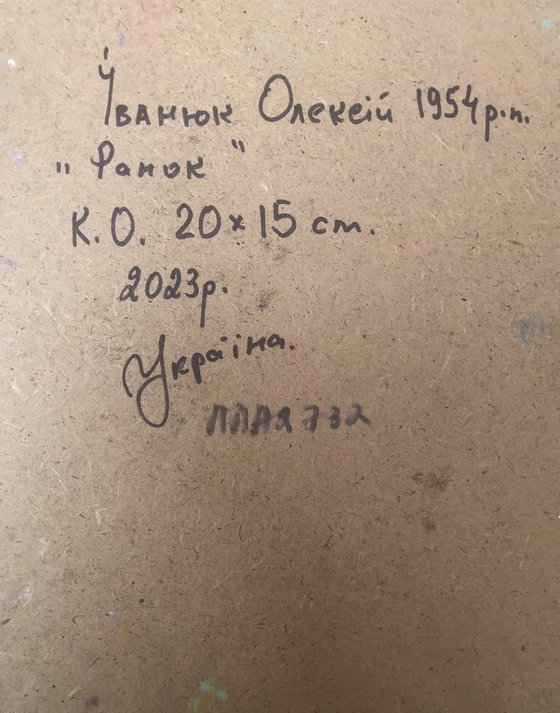 Іванюк Олексій 1954 р.н.
„Ранок"
К.О. 20×15 см.
2023р.
Україна.